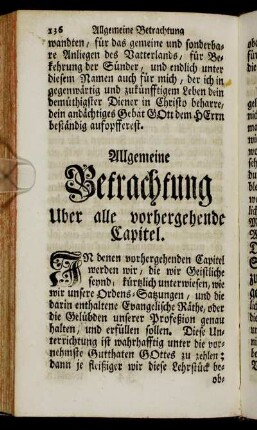 236 Allgemeine Betrachtung
wandten, für das gemeine und sonderba-
re Anliegen des Vatterlands, für Be-
kehrung der Sünder, und endlich unter
diesem Namen auch für mich, der ich in
gegenwärtig und zukünfftigem Leben dein
demüthigster Diener in Christo beharre,
dein andächtiges Gebät GOtt dem HErrn
beständig aufopfferest.
Allgemeine
Betrachtung
Uber alle vorhergehende
Capitel.
IN denen vorhergehenden Capitel
werden wir, die wir Geistliche
seynd, kürtzlich unterwiesen, wie
wir unsere Ordens-Satzungen, und die
darin enthaltene Evangelische Räthe, oder
die Gelübden unserer Profeßion genau
halten, und erfüllen sollen. Diese Un-
terrichtung ist wahrhafftig unter die vor-
nehmste Gutthaten GOttes zu zehlen;
dann je fleißiger wir diese Lehrstück be-
ob-